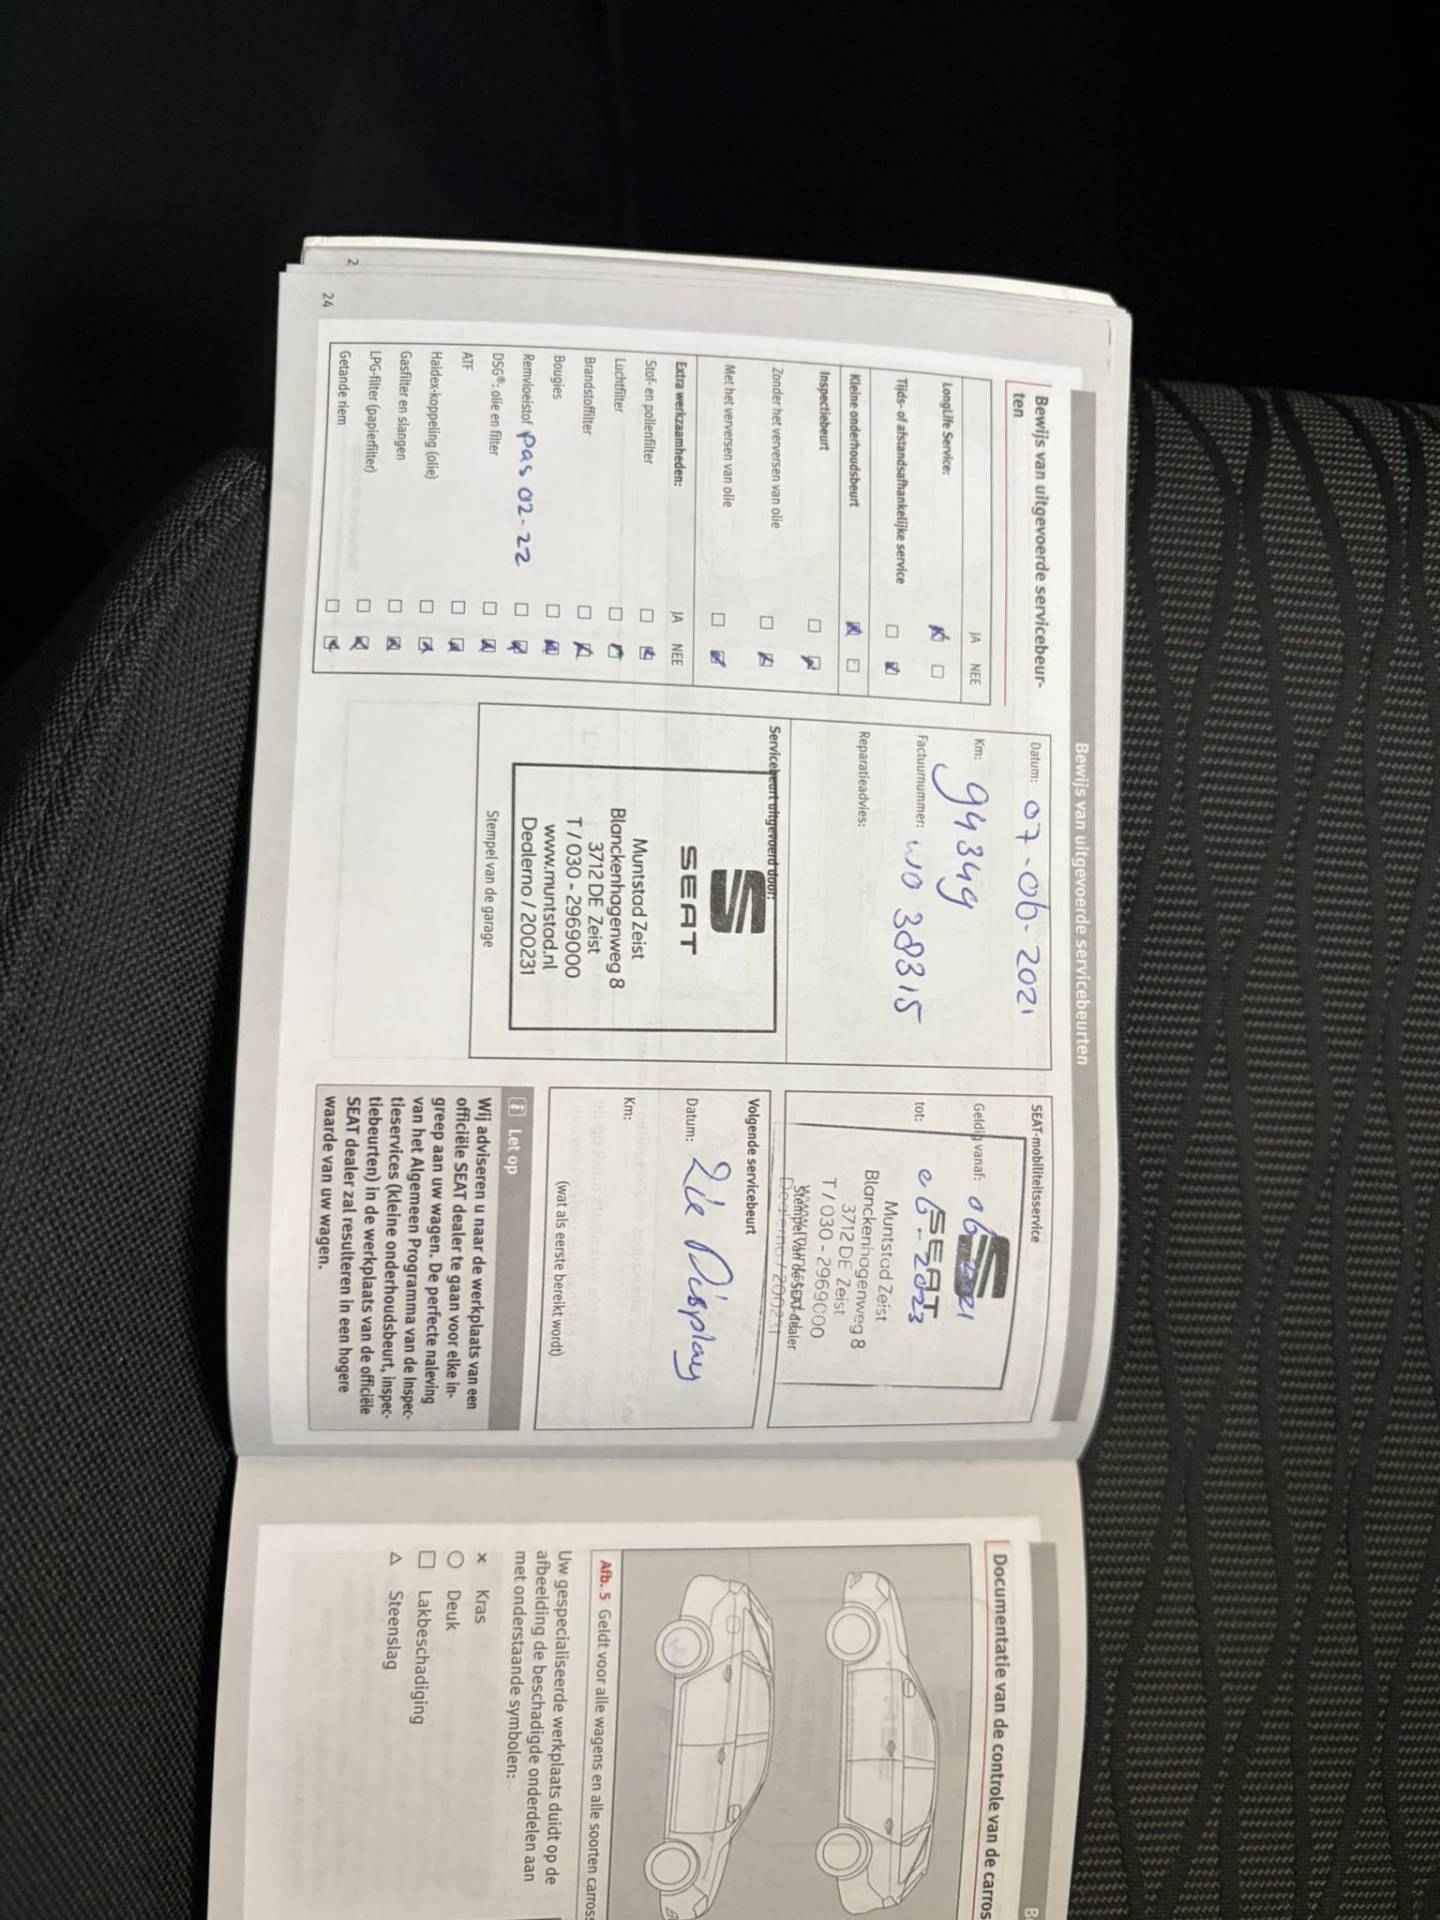 Bewijs van uitgevoerde servicebeurten
Bewijs van uitgevoerde servicebeur-
ten
JA NEE
LongLife Service:
Tijds- of afstandsafhankelijke service
Kleine onderhoudsbeurt
Inspectiebeurt
Zonder het verversen van olie
Met het verversen van olie
Extra werkzaamheden: JA NEE
Stof- en pollenfilter
Luchtfilter
Brandstoffilter
Bougies
Remvloeistof pas 02-22
DSG®: olie en filter
ATF
Haldex-koppeling (olie)
Gasfilter en slangen
LPG-filter (papierfilter)
Getande riem
24
2
Datum: 07-06-2021
Km: 94349
Factuurnummer: WO 38315
Reparatieadvies:
Servicebeurt uitgevoerd door:
SEAT
Muntstad Zeist
Blanckenhagenweg 8
3712 DE Zeist
T / 030 - 2969000
www.muntstad.nl
Dealerno / 200231
Stempel van de garage
SEAT-mobiliteitsservice
Geldig vanaf: 06-2021
tot: 06-2023
SEAT
Muntstad Zeist
Blanckenhagenweg 8
3712 DE Zeist
T / 030 - 2969000
www.muntstad.nl
Stempel van de SEAT-dealer
Dealerno / 200231
Volgende servicebeurt
Datum: Zie Display
Km:
(wat als eerste bereikt wordt)
i Let op
Wij adviseren u naar de werkplaats van een
officiële SEAT dealer te gaan voor elke in-
greep aan uw wagen. De perfecte naleving
van het Algemeen Programma van de Inspec-
tieservices (kleine onderhoudsbeurt, inspec-
tiebeurten) in de werkplaats van de officiële
SEAT dealer zal resulteren in een hogere
waarde van uw wagen.
Documentatie van de controle van de carros
Afb. 5 Geldt voor alle wagens en alle soorten carross
Uw gespecialiseerde werkplaats duidt op de
afbeelding de beschadigde onderdelen aan
met onderstaande symbolen:
× Kras
○ Deuk
□ Lakbeschadiging
△ Steenslag